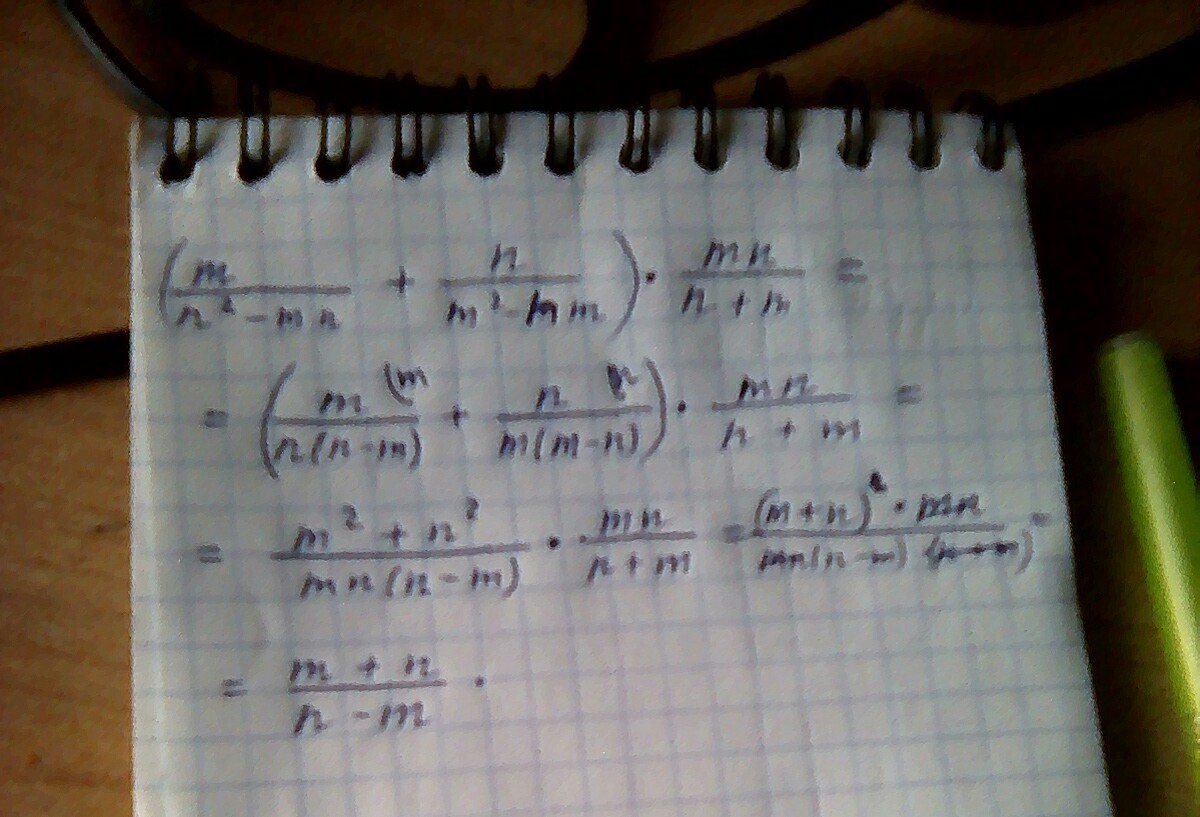 (m/(n² - mn) + n/(m² - nm)) · mn/(n + m) =
= (m (m/(n(n-m)) + n (n/(m(m-n))) · mn/(n + m) =
= (m² + n²)/(mn(n-m)) · mn/(n+m) = ((m+n)² · mn)/(mn(n-m)(n+m)) =
= (m + n)/(n - m) .